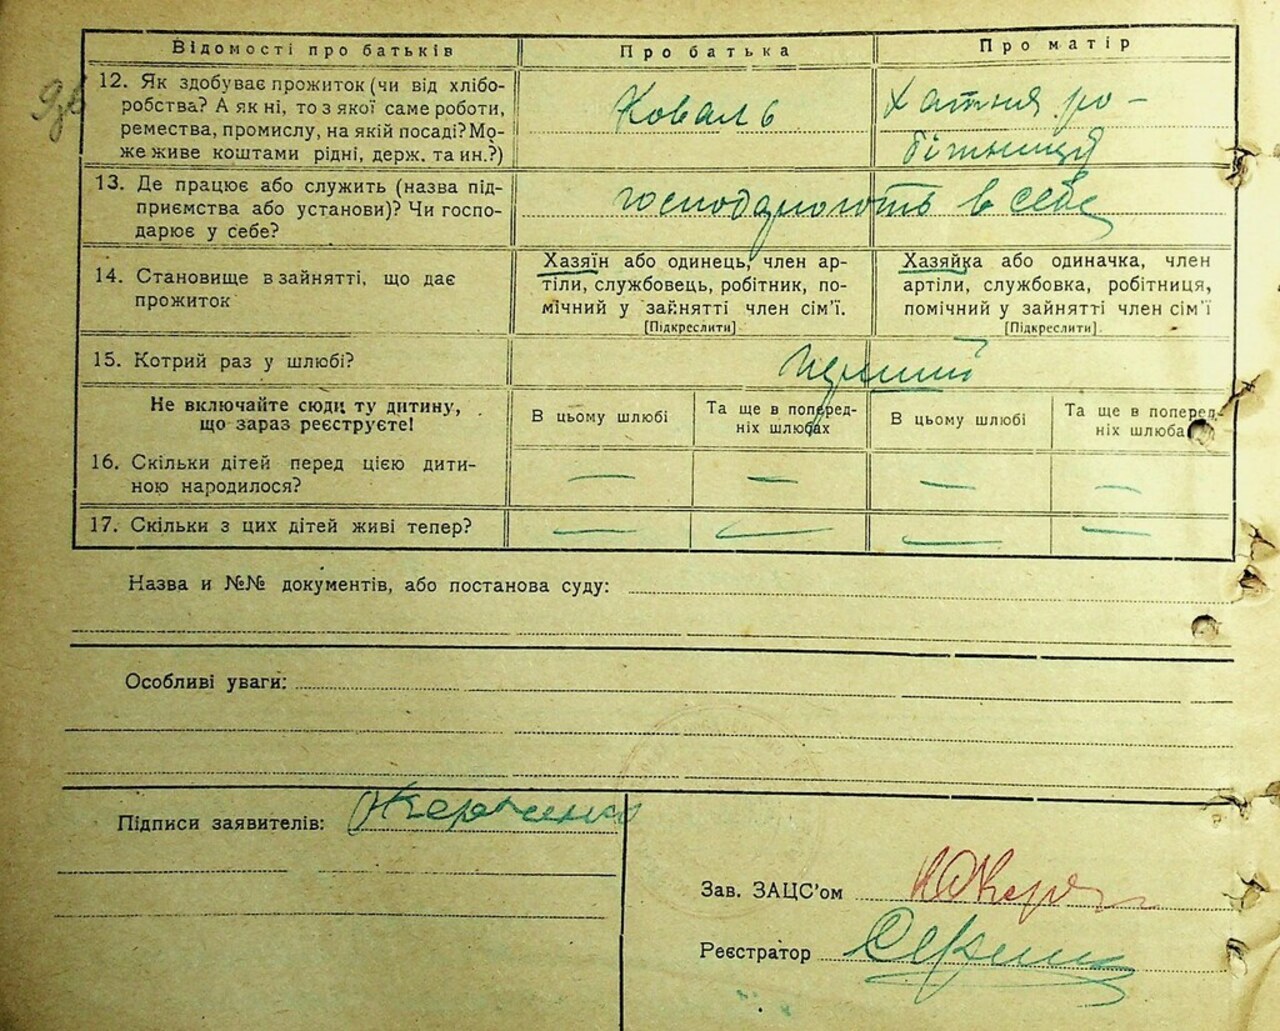 Відомості про батьків Про батька Про матір
12. Як здобуває прожиток (чи від хлібо-
робства? А як ні, то з якої саме роботи,
ремества, промислу, на якій посаді? Мо-
же живе коштами рідні, держ. та ин.?)
Коваль
Хатня ро-
бітниця
13. Де працює або служить (назва під-
приємства або установи)? Чи госпо-
дарює у себе?
господарюють в себе
14. Становище в зайнятті, що дає
прожиток
Хазяїн або одинець, член ар-
тіли, службовець, робітник, по-
мічний у зайнятті член сім'ї.
[Підкреслити]
Хазяйка або одиначка, член
артіли, службовка, робітниця,
помічний у зайнятті член сім'ї
[Підкреслити].
15. Котрий раз у шлюбі?
перший
Не включайте сюди ту дитину,
що зараз реєструєте!
В цьому шлюбі
Та ще в поперед-
ніх шлюбах
В цьому шлюбі
Та ще в поперед-
ніх шлюба
16. Скільки дітей перед цією дити-
ною народилося?
— — — —
17. Скільки з цих дітей живі тепер?
— — — —
Назва и №№ документів, або постанова суду:
Особливі уваги:
Підписи заявителів:
Зав. ЗАЦС'ом
Реєстратор